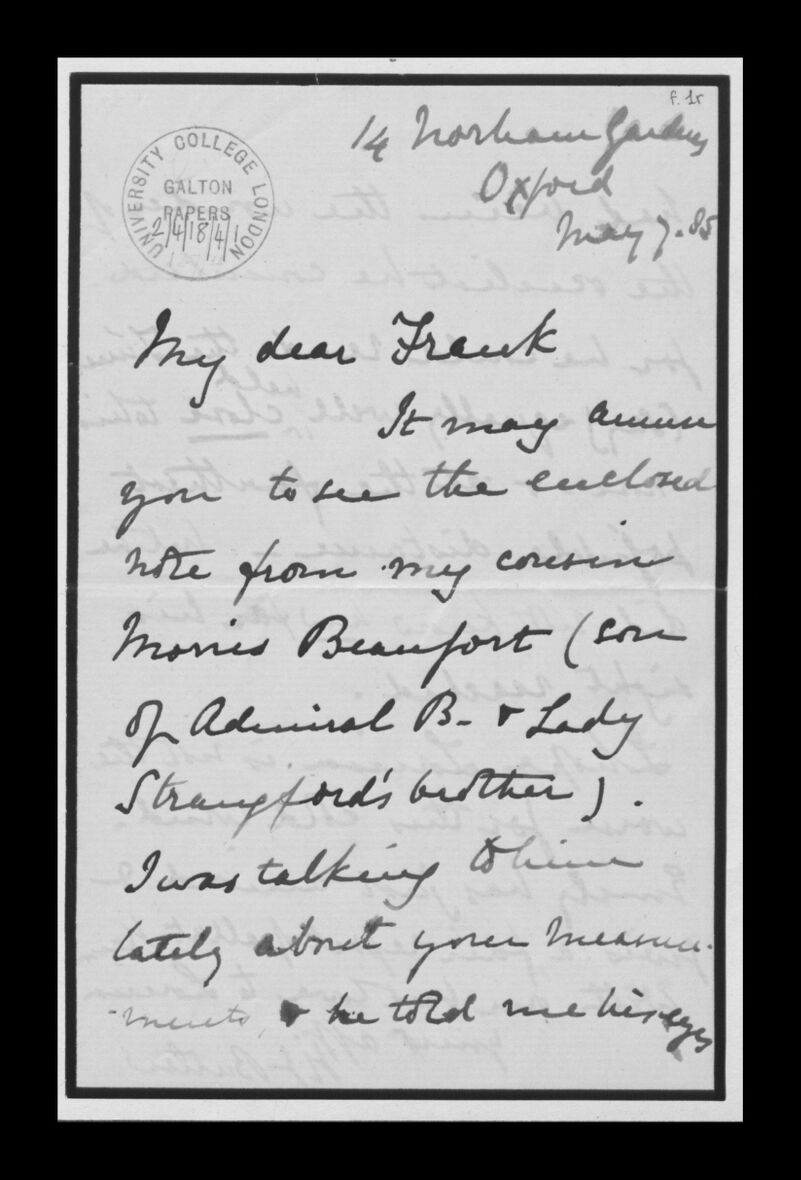 f. 1r
14 Norham Gardens
Oxford
May 7. 85
UNIVERSITY COLLEGE LONDON
GALTON
PAPERS
2/4/18/4/1
My dear Frank
It may amuse
you to see the enclosed
note from my cousin
Morris Beaufort (son
of Admiral B. & Lady
Strangford's brother).
I was talking to him
lately about your measure-
-ments, & he told me his eyes